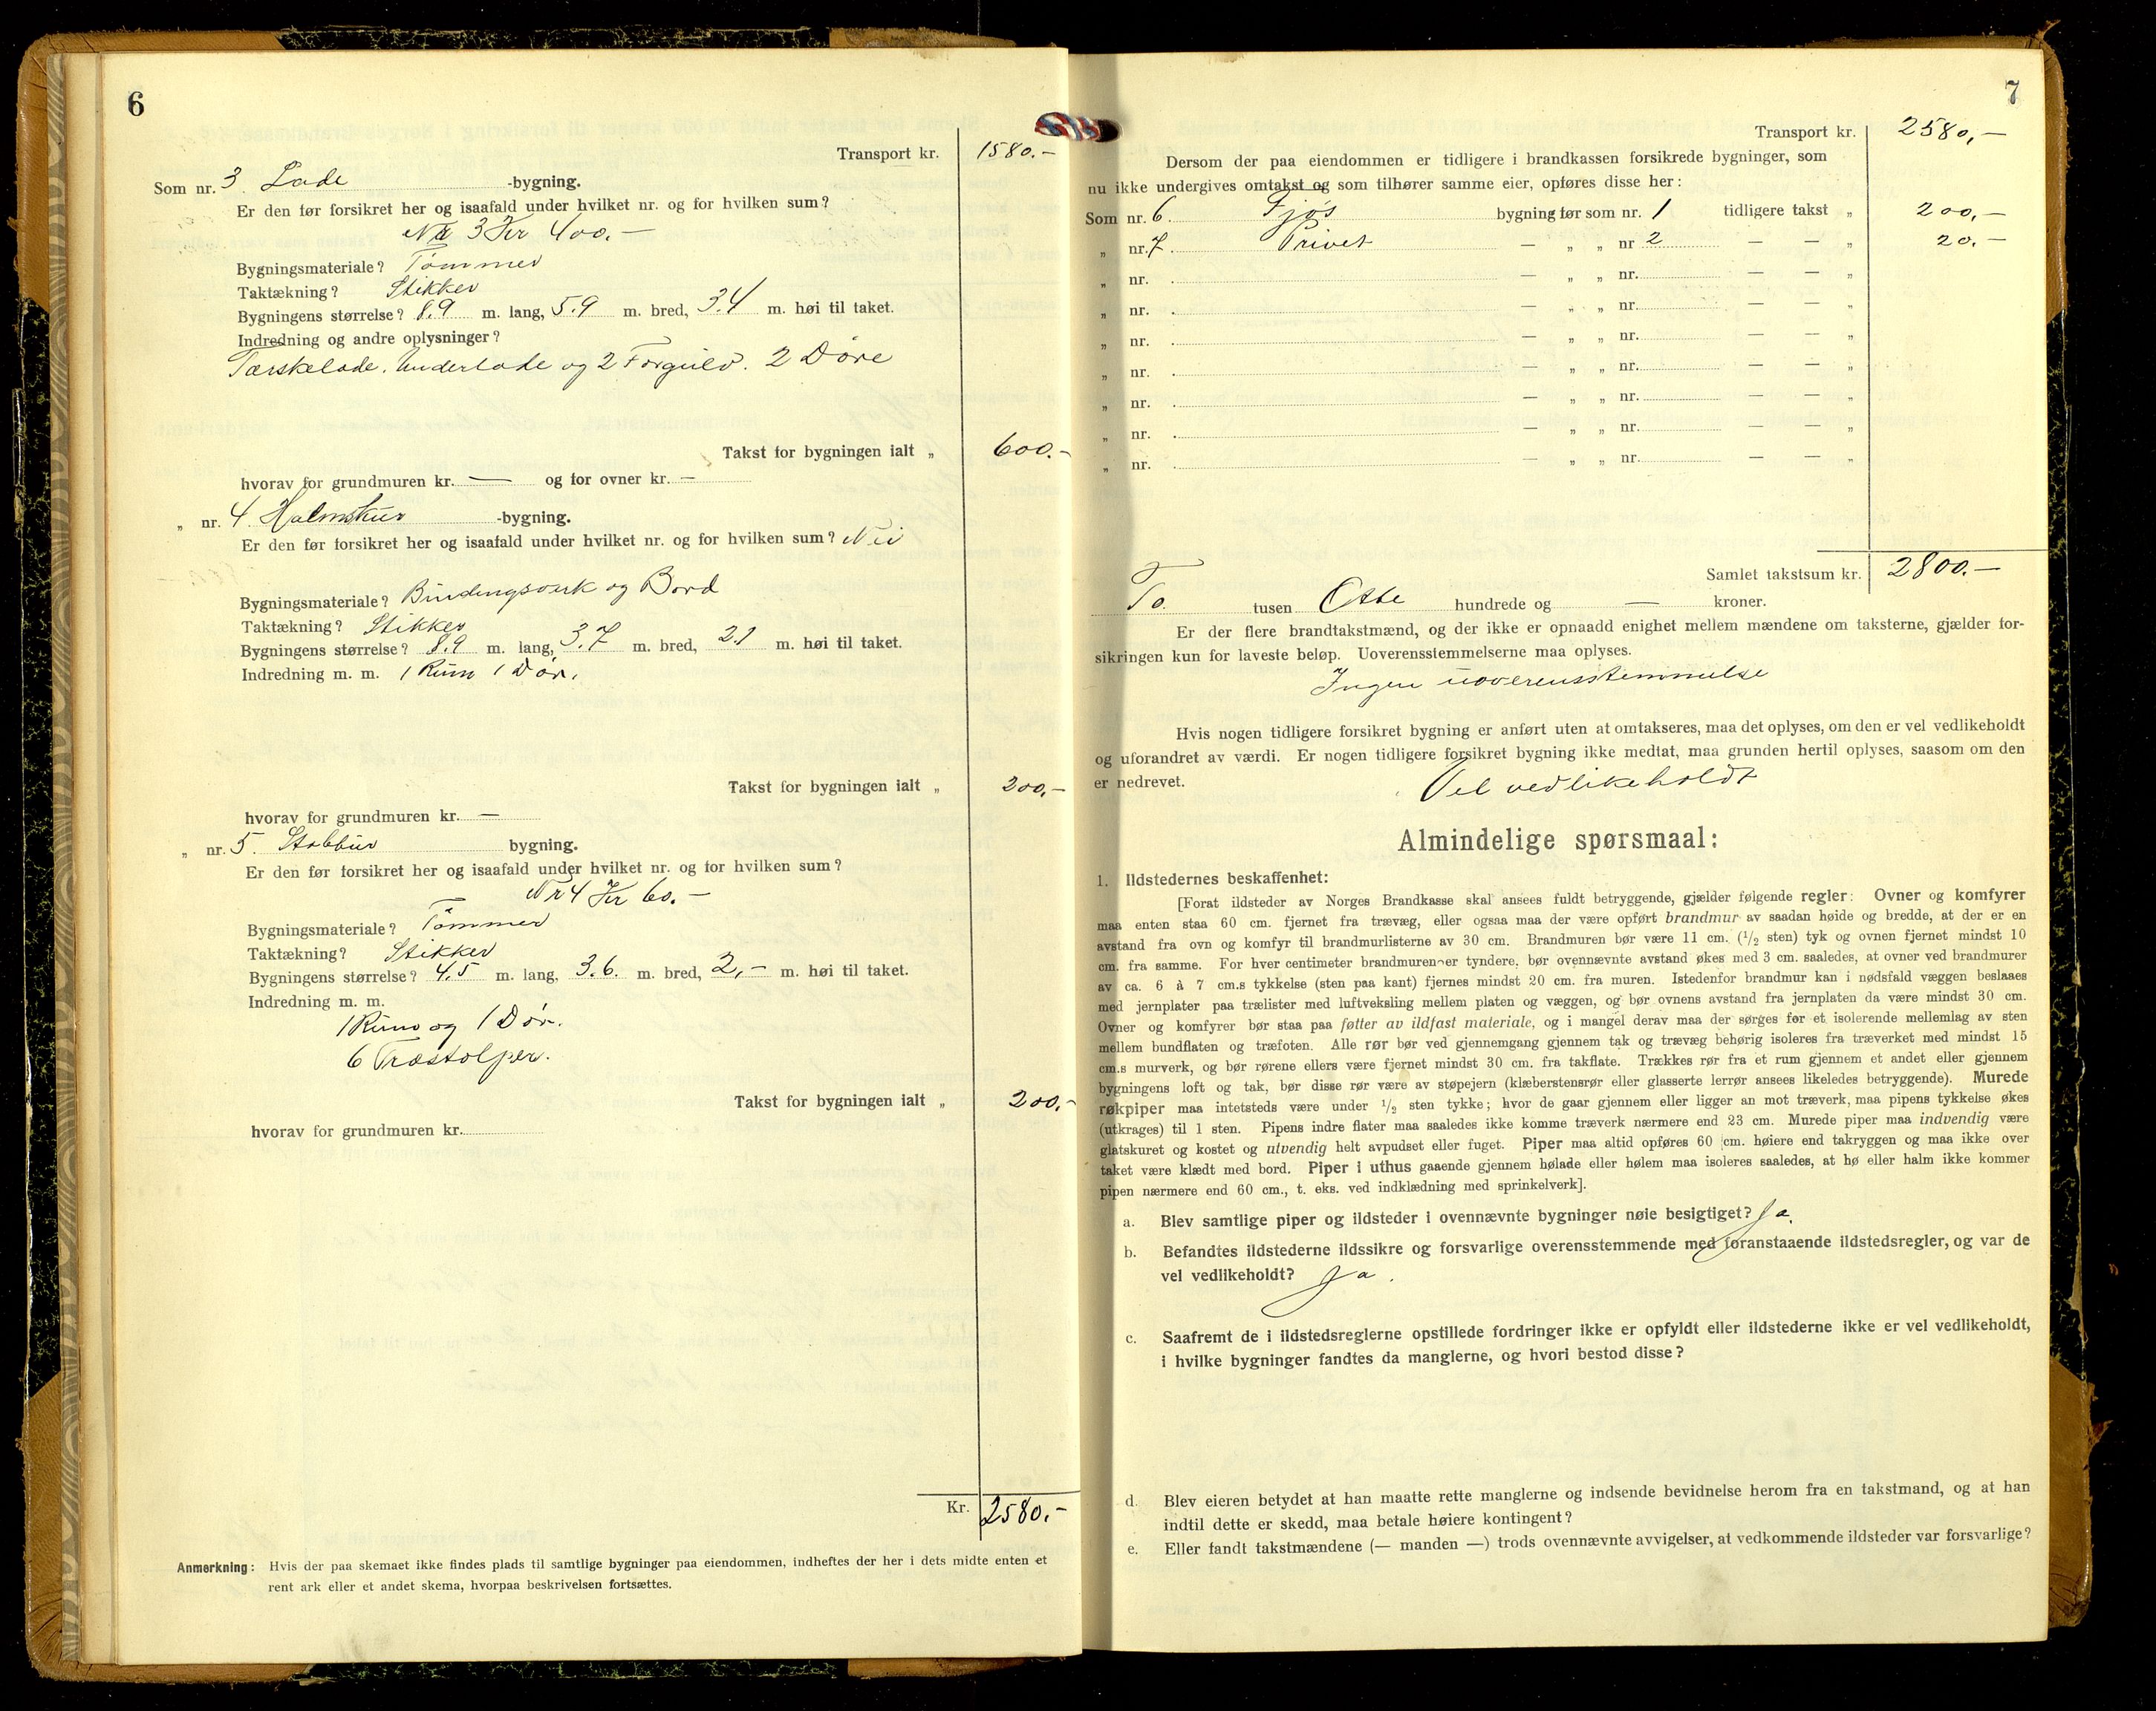 6
Transport kr. 1580.-
Som nr. 3. Lade -bygning.
Er den før forsikret her og isaafald under hvilket nr. og for hvilken sum?
Nr 3 Kr 400.-
Bygningsmateriale? Tømmer
Taktækning? Stikker
Bygningens størrelse? 8.9 m. lang, 5.9 m. bred, 3.4 m. høi til taket.
Indredning og andre oplysninger?
Tærskelade. Underlade og 2 Forgulv. 2 Døre
Takst for bygningen ialt „ 600.-
hvorav for grundmuren kr. — og for ovner kr. —
„ nr. 4. Halmskur -bygning.
Er den før forsikret her og isaafald under hvilket nr. og for hvilken sum? Nei
Bygningsmateriale? Bindingsverk og Bord
Taktækning? Stikker
Bygningens størrelse? 8.9 m. lang, 3.7 m. bred, 2.1 m. høi til taket.
Indredning m. m. 1 Rum 1 Dør.
Takst for bygningen ialt „ 200.-
hvorav for grundmuren kr. —
„ nr. 5. Stabbur bygning.
Er den før forsikret her og isaafald under hvilket nr. og for hvilken sum?
Nr 4 Kr 60.-
Bygningsmateriale? Tømmer
Taktækning? Stikker
Bygningens størrelse? 4.5 m. lang, 3.6. m. bred, 2,- m. høi til taket.
Indredning m. m.
1 Rum og 1 Dør.
6 Træstolper.
Takst for bygningen ialt „ 200.-
hvorav for grundmuren kr.
Kr. 2580.-
Anmerkning: Hvis der paa skemaet ikke findes plads til samtlige bygninger paa eiendommen, indheftes der her i dets midte enten et
rent ark eller et andet skema, hvorpaa beskrivelsen fortsættes.
7
Transport kr. 2580,-
Dersom der paa eiendommen er tidligere i brandkassen forsikrede bygninger, som
nu ikke undergives omtakst og som tilhører samme eier, opføres disse her:
Som nr. 6. Fjøs bygning før som nr. 1 tidligere takst „ 200,-
„ nr. 7 Privet — „ „ nr 2 — — „ 20.-
„ nr. — „ „ nr. — — „
„ nr. — „ „ nr. — — „
„ nr. — „ „ nr. — — „
„ nr. — „ „ nr. — — „
„ nr. — „ „ nr. — — „
„ nr. — „ „ nr. — — „
„ nr. — „ „ nr. — — „
Samlet takstsum kr. 2800.-
To tusen Otte hundrede og — kroner.
Er der flere brandtakstmænd, og der ikke er opnaadd enighet mellem mændene om taksterne, gjælder for-
sikringen kun for laveste beløp. Uoverensstemmelserne maa oplyses.
Ingen uoverensstemmelse
Hvis nogen tidligere forsikret bygning er anført uten at omtakseres, maa det oplyses, om den er vel vedlikeholdt
og uforandret av værdi. Er nogen tidligere forsikret bygning ikke medtat, maa grunden hertil oplyses, saasom om den
er nedrevet. Vel vedlikeholdt
Almindelige spørsmaal:
1. Ildstedernes beskaffenhet:
[Forat ildsteder av Norges Brandkasse skal ansees fuldt betryggende, gjælder følgende regler: Ovner og komfyrer
maa enten staa 60 cm. fjernet fra trævæg, eller ogsaa maa der være opført brandmur av saadan høide og bredde, at der er en
avstand fra ovn og komfyr til brandmurlisterne av 30 cm. Brandmuren bør være 11 cm. (1/2 sten) tyk og ovnen fjernet mindst 10
cm. fra samme. For hver centimeter brandmuren er tyndere, bør ovennævnte avstand økes med 3 cm. saaledes, at ovner ved brandmurer
av ca. 6 à 7 cm.s tykkelse (sten paa kant) fjernes mindst 20 cm. fra muren. Istedenfor brandmur kan i nødsfald væggen beslaaes
med jernplater paa trælister med luftveksling mellem platen og væggen, og bør ovnens avstand fra jernplaten da være mindst 30 cm.
Ovner og komfyrer bør staa paa føtter av ildfast materiale, og i mangel derav maa der sørges før et isolerende mellemlag av sten
mellem bundflaten og træfoten. Alle rør bør ved gjennemgang gjennem tak og trævæg behørig isoleres fra træverket med mindst 15
cm.s murverk, og bør rørene ellers være fjernet mindst 30 cm. fra takflate. Trækkes rør fra et rum gjennem et andet eller gjennem
bygningens loft og tak, bør disse rør være av støpejern (klæberstensrør eller glasserte lerrør ansees likeledes betryggende). Murede
røkpiper maa intetsteds være under 1/2 sten tykke; hvor de gaar gjennem eller ligger an mot træverk, maa pipens tykkelse økes
(utkrages) til 1 sten. Pipens indre flater maa saaledes ikke komme træverk nærmere end 23 cm. Murede piper maa indvendig være
glatskuret og kostet og utvendig helt avpudset eller fuget. Piper maa altid opføres 60 cm. høiere end takryggen og maa ikke over
taket være klædt med bord. Piper i uthus gaaende gjennem hølade eller hølem maa isoleres saaledes, at hø eller halm ikke kommer
pipen nærmere end 60 cm., t. eks. ved indklædning med sprinkelverk].
a. Blev samtlige piper og ildsteder i ovennævnte bygninger nøie besigtiget? Ja.
b. Befandtes ildstederne ildssikre og forsvarlige overensstemmende med foranstaaende ildstedsregler, og var de
vel vedlikeholdt? Ja.
c. Saafremt de i ildstedsreglerne opstillede fordringer ikke er opfyldt eller ildstederne ikke er vel vedlikeholdt,
i hvilke bygninger fandtes da manglerne, og hvori bestod disse?
d. Blev eieren betydet at han maatte rette manglerne og indsende bevidnelse herom fra en takstmand, og at han
indtil dette er skedd, maa betale høiere kontingent?
e. Eller fandt takstmændene (— manden —) trods ovennævnte avvigelser, at vedkommende ildsteder var forsvarlige?